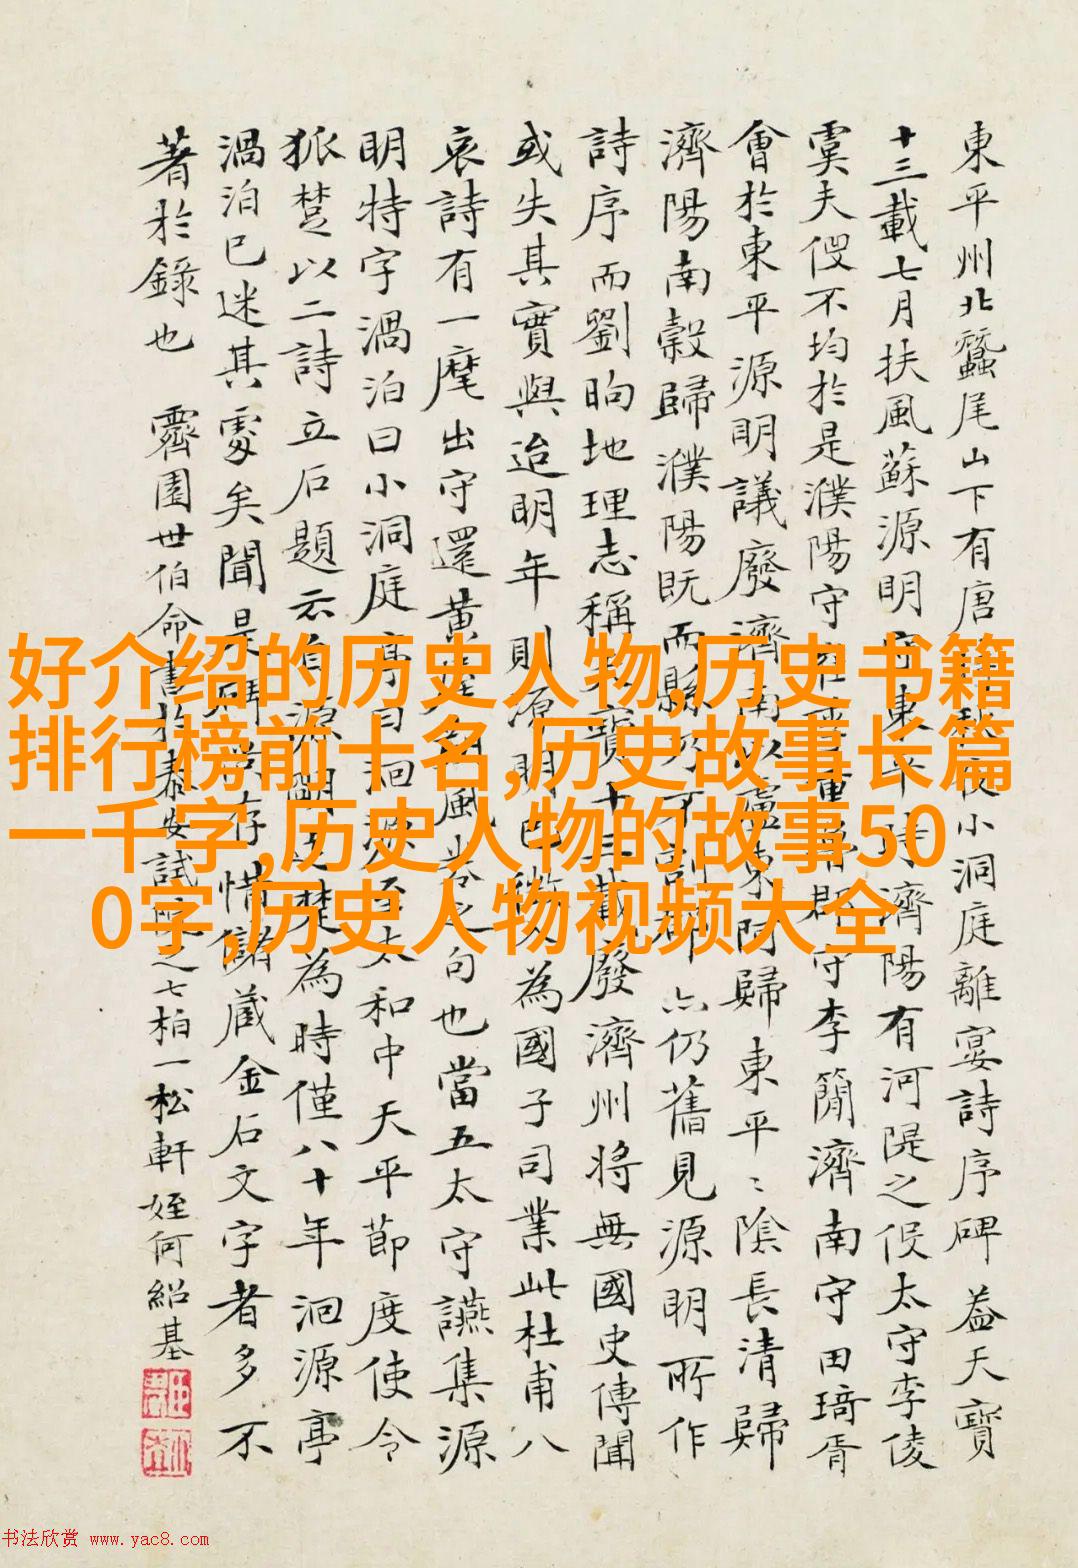 東平州北蠶尾山下有唐小洞庭離宴詩序碑葢天寶
十三載七月扶風蘇源明濟陽有河隄之役太守李倰
虞夫役不均於是濮陽守郡守李簡濟南守田琦胥
會於東平源明議廢濟南以盧東阿歸東平二陰長清歸
濟陽南穀歸濮陽既而縣仍舊見源明所作
詩序而劉昫地理志稱天寶十三載廢濟州將無國史傳聞
或失其實與迨明年則源明已徵為國子司業此杜甫八
哀詩有一麾出守還黃句也當五太守讌集源
明特字渦泊曰小洞庭亭曰洄源至太和中天平節度使令
狐楚以二詩立石題云自源明及楚為時僅八十年洄源亭
渦泊已迷其處矣聞是碑尚存惜儲藏金石文字者多不
著於錄也 霽園世伯命書於泰安試院之七柏一松軒 姪何紹基
好介绍的历史人物,历史书籍
排行榜前十名,历史故事长篇
一千字,历史人物的故事50
0字,历史人物视频大全
书法欣赏 www.yac8.com